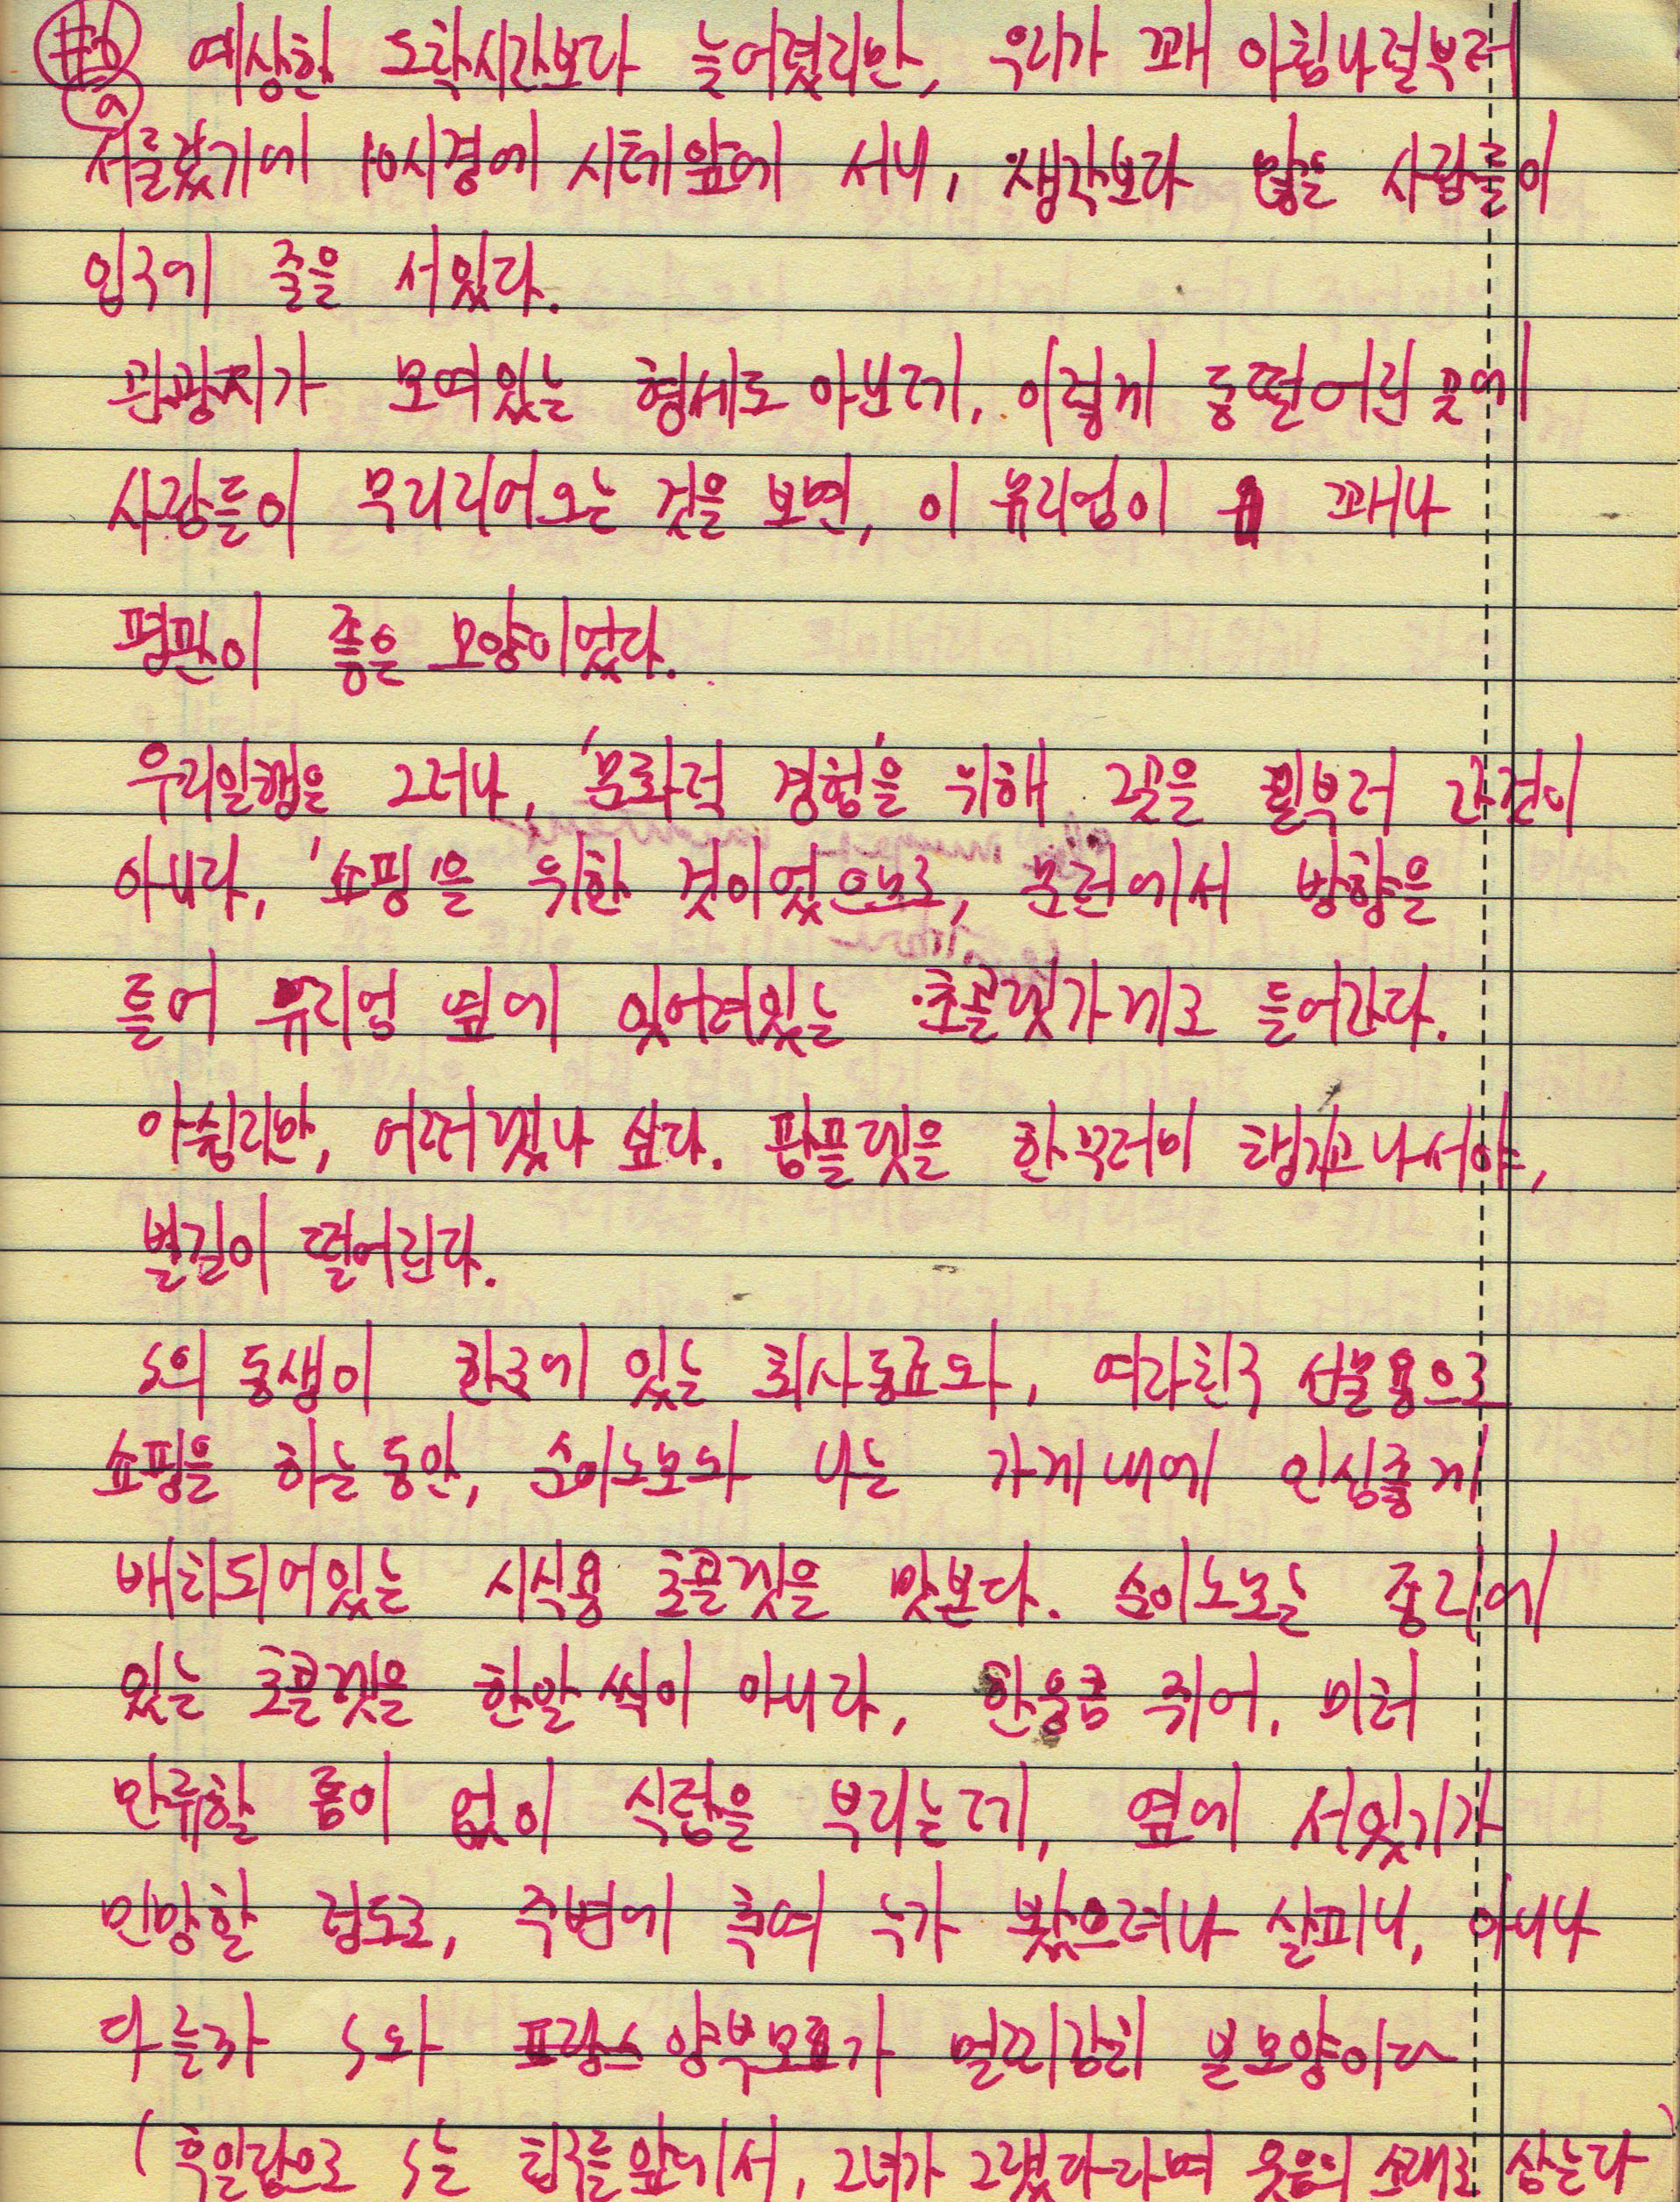 #6 예상한 도착시간보다 늦어졌지만, 우리가 꽤 아침나절부터
a
서둘렀기에 10시경에 시테앞에 서니, 생각보다 많은 사람들이
입구에 줄을 서있다.
관광지가 모여있는 형세도 아닌데, 이렇게 동떨어진 곳에
사람들이 무리지어오는 것을 보면, 이 뮤지엄이 꽤나
평판이 좋은 모양이었다.
우리일행은 그러나, '문화적 경험'을 위해 그곳을 일부러 간것이
아니라, '쇼핑'을 위한 것이었으므로, 문전에서 방향을
틀어 뮤지엄 옆에 잇어져있는 초콜릿가게로 들어간다.
아쉽지만, 어쩌겠나 싶다. 팜플렛을 한꾸러미 챙기고나서야,
발길이 떨어진다.
S의 동생이 한국에 있는 회사동료와, 여자친구 선물용으로
쇼핑을 하는동안, 순이노모와 나는 가게내에 인심좋게
배치되어있는 시식용 초콜릿을 맛본다. 순이노모는 종지에
있는 초콜릿을 한알씩이 아니라, 한움큼 쥐어, 미처
만류할 틈이 없이 식탐을 부리는데, 옆에 서있기가
민망할 정도로, 주변에 혹여 누가 봤으려나 살피니, 아니나
다를까 S와 프랑스양부모가 멀찌감치 본모양이다
(후일담으로 S는 친구들앞에서, 그녀가 그랬다라며 웃음의 소재로 삼는다)